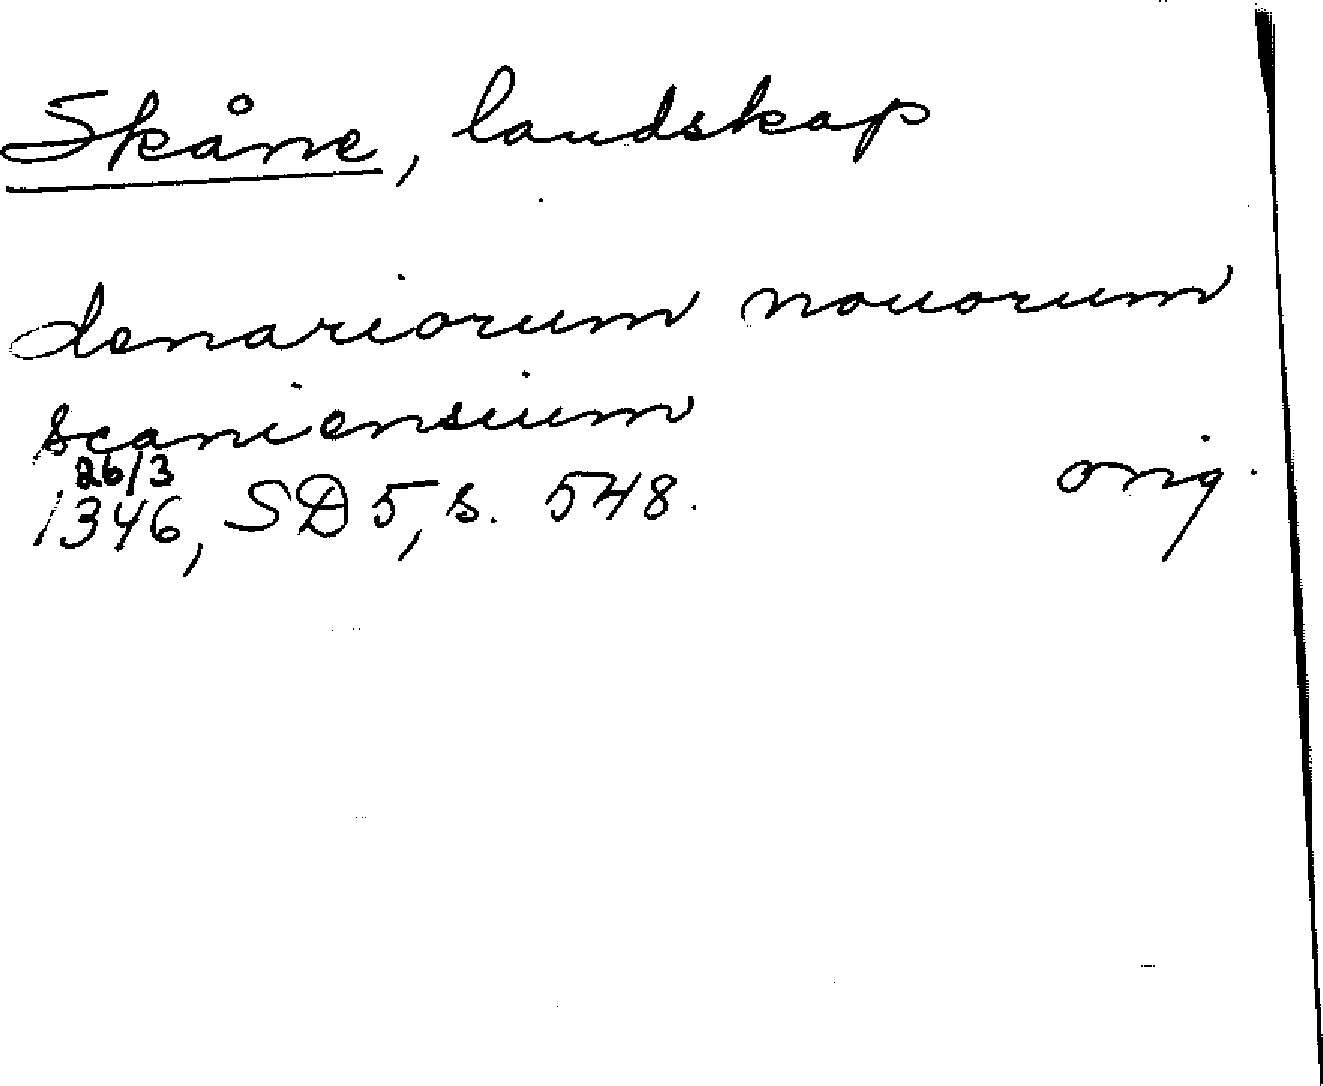 Skåne, landskap
denariorum nouorum
scaniensium
26/3
1346, SD 5, s. 548. orig.